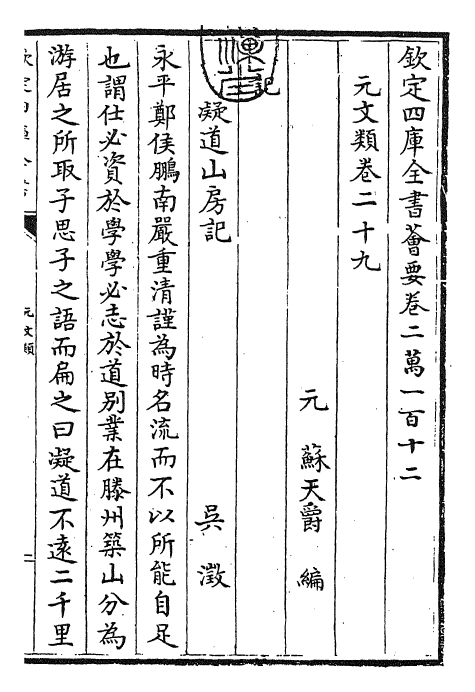 欽定四庫全書薈要卷二萬一百十二
元文類卷二十九
元 蘇天爵 編
記
凝道山房記 吳澂
永平鄭侯鵬南嚴重清謹為時名流而不以所能自足
也謂仕必資於學學必志於道别業在滕州築山分為
游居之所取子思子之語而扁之曰凝道不遠二千里
元文類